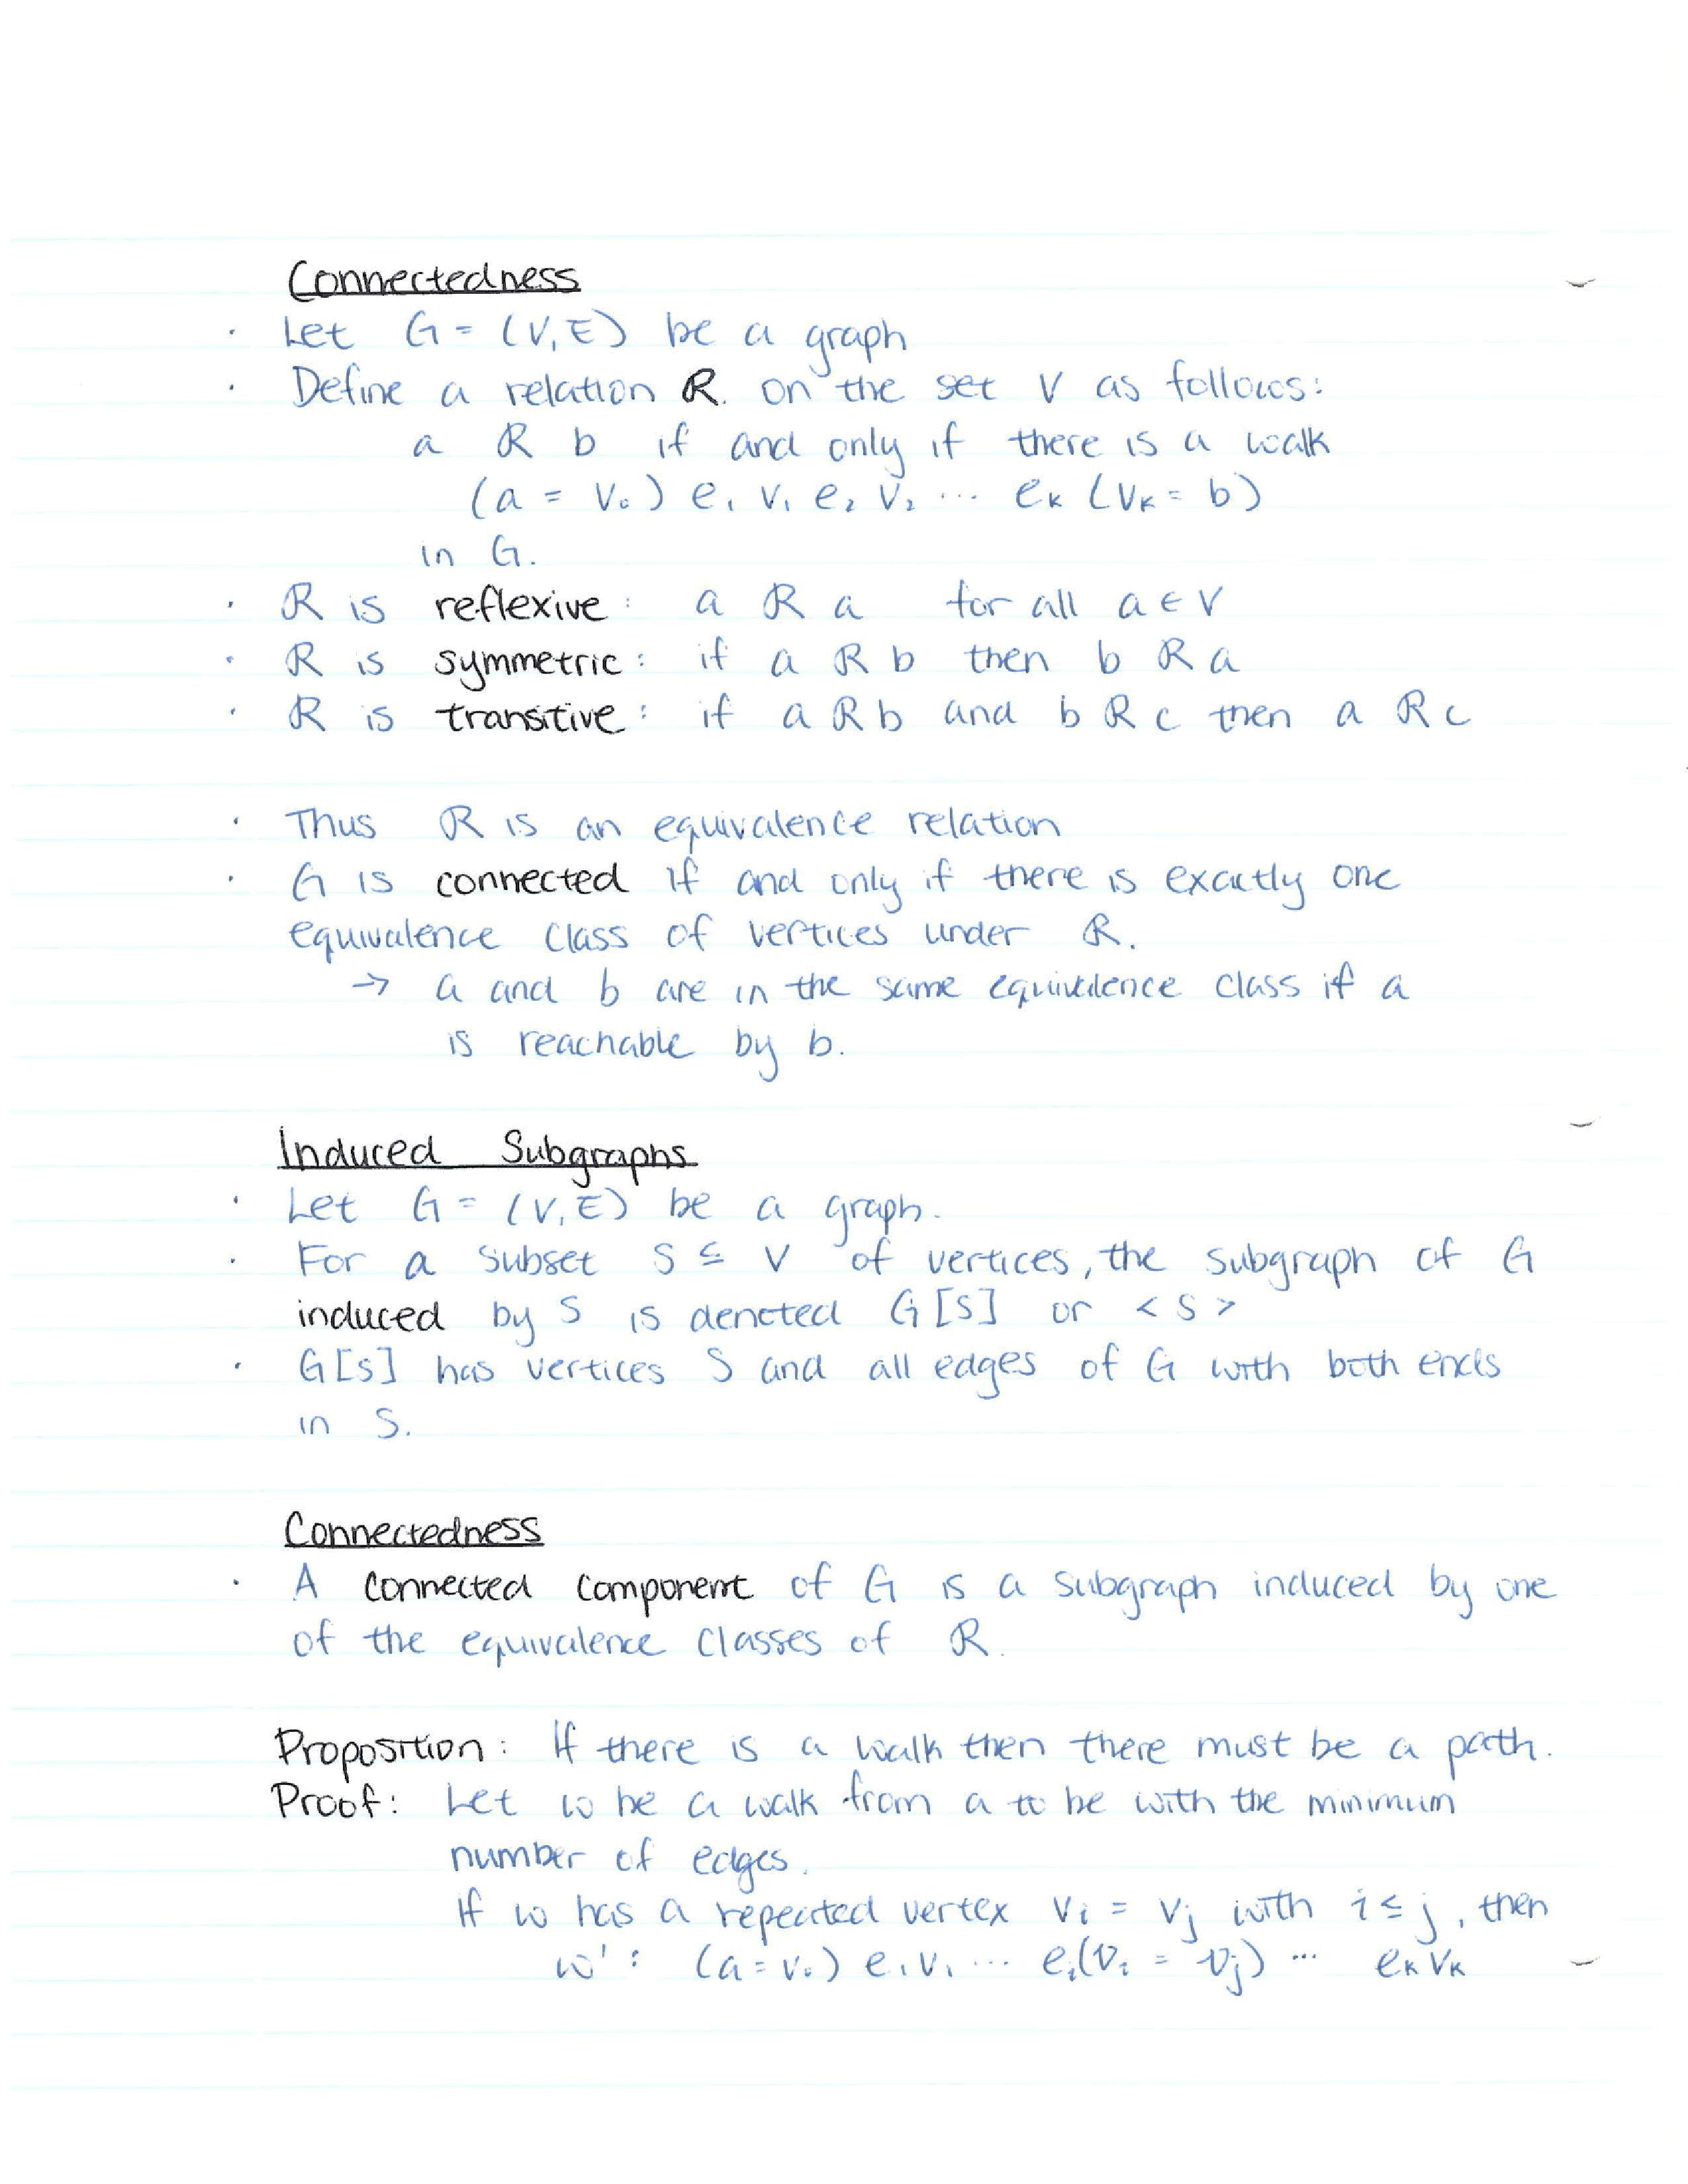 Connectedness
· Let G = (V, E) be a graph
· Define a relation R. on the set V as follows:
a R b if and only if there is a walk
(a = v₀) e₁ v₁ e₂ v₂ ... eₖ (vₖ = b)
in G.
· R is reflexive: a R a for all a ∈ V
· R is symmetric: if a R b then b R a
· R is transitive: if a R b and b R c then a R c
· Thus R is an equivalence relation
· G is connected if and only if there is exactly one
equivalence class of vertices under R.
→ a and b are in the same equivalence class if a
is reachable by b.
Induced Subgraphs
· Let G = (V, E) be a graph.
· For a subset S ⊆ V of vertices, the subgraph of G
induced by S is denoted G[S] or < S >
· G[S] has vertices S and all edges of G with both ends
in S.
Connectedness
· A connected component of G is a subgraph induced by one
of the equivalence classes of R.
Proposition: If there is a walk then there must be a path.
Proof: Let w be a walk from a to be with the minimum
number of edges.
If w has a repeated vertex vᵢ = vⱼ with i ≤ j, then
w' : (a = v₀) e₁ v₁ ... eᵢ(vᵢ = vⱼ) ... eₖ vₖ